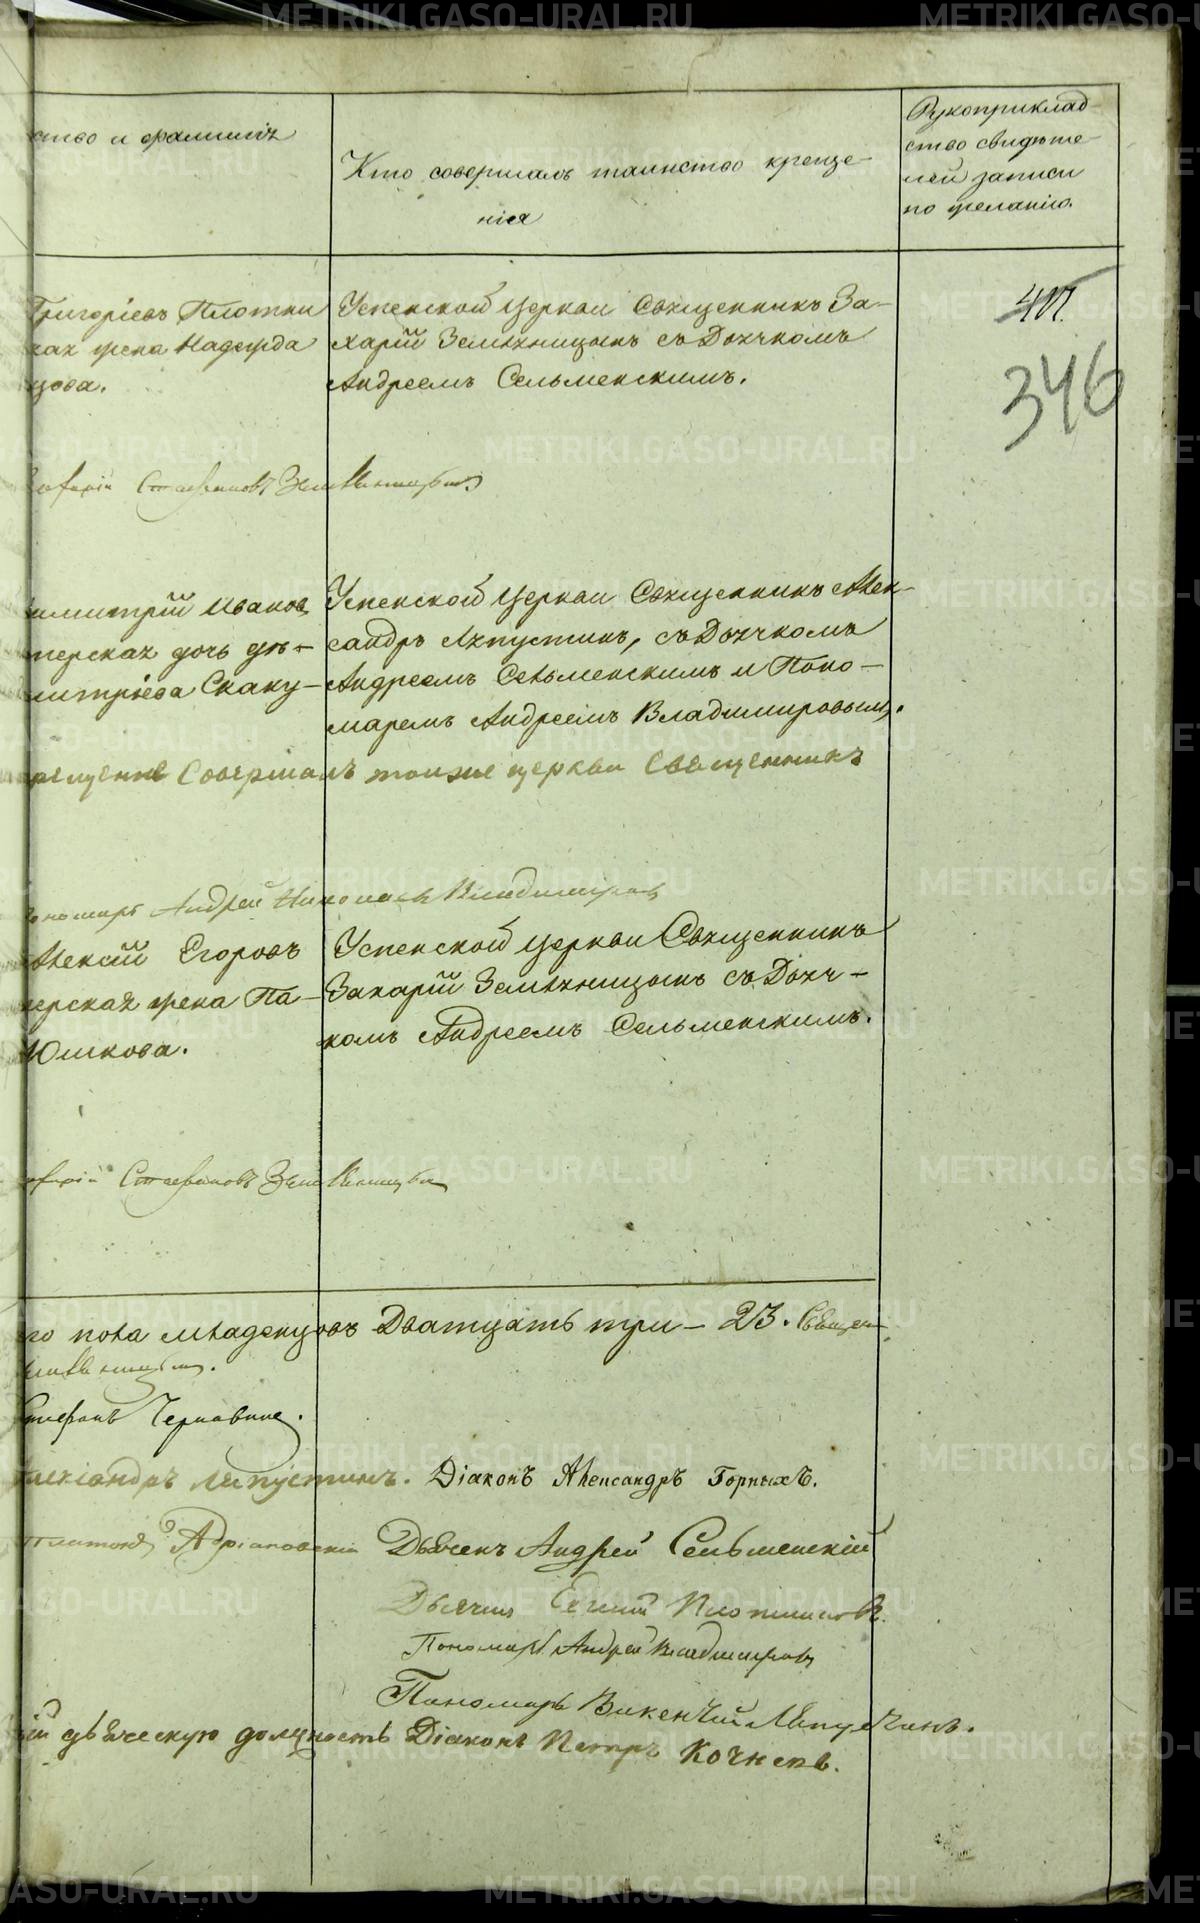 METRIKI.GASO-URAL.RU
ство и фамилія
Кто совершалъ таинство креще-
нія
Рукоприклад
ство свидѣте-
лей записи
по желанію.
346
Григоріевъ Плотни
кая жена Надежда
цова.
Успенской Церкви Священникъ За-
харій Земляницынъ съ Дьячкомъ
Андреемъ Сельменскимъ.
Стефановъ Земляницынъ
имитрій Иванов
терская дочь дѣ-
митріева Скаку-
Успенской Церкви Священникъ Алек-
сандръ Ляпустинъ, съ Дьячкомъ
Андреемъ Сельменскимъ и Поно-
маремъ Андреемъ Владимировым.
рещение Совершалъ тоиже церкви Священникъ
ономарь Андрей Николаевъ Владимировъ
Алексій Егоровъ
терская жена Па-
Юшкова.
Успенской Церкви Священникъ
Захарій Земляницынъ съ Дьяч-
комъ Андреемъ Сельменскимъ.
Стефановъ Земляницынъ
го пола младенцовъ Дватцать три - 23. Священ
мляницынъ.
Стефанъ Чернавинъ.
Александръ Ляпустинъ. Діаконъ Александръ Горныхъ.
Платонъ Адріановскій Дьячекъ Андрей Сельменскій
Дьячекъ Евгеній Плотниковъ.
Пономарь Андрей Владимировъ
Пономарь Викентій Ляпустинъ.
ій дьяческую должность Діаконъ Петръ Кочневъ.